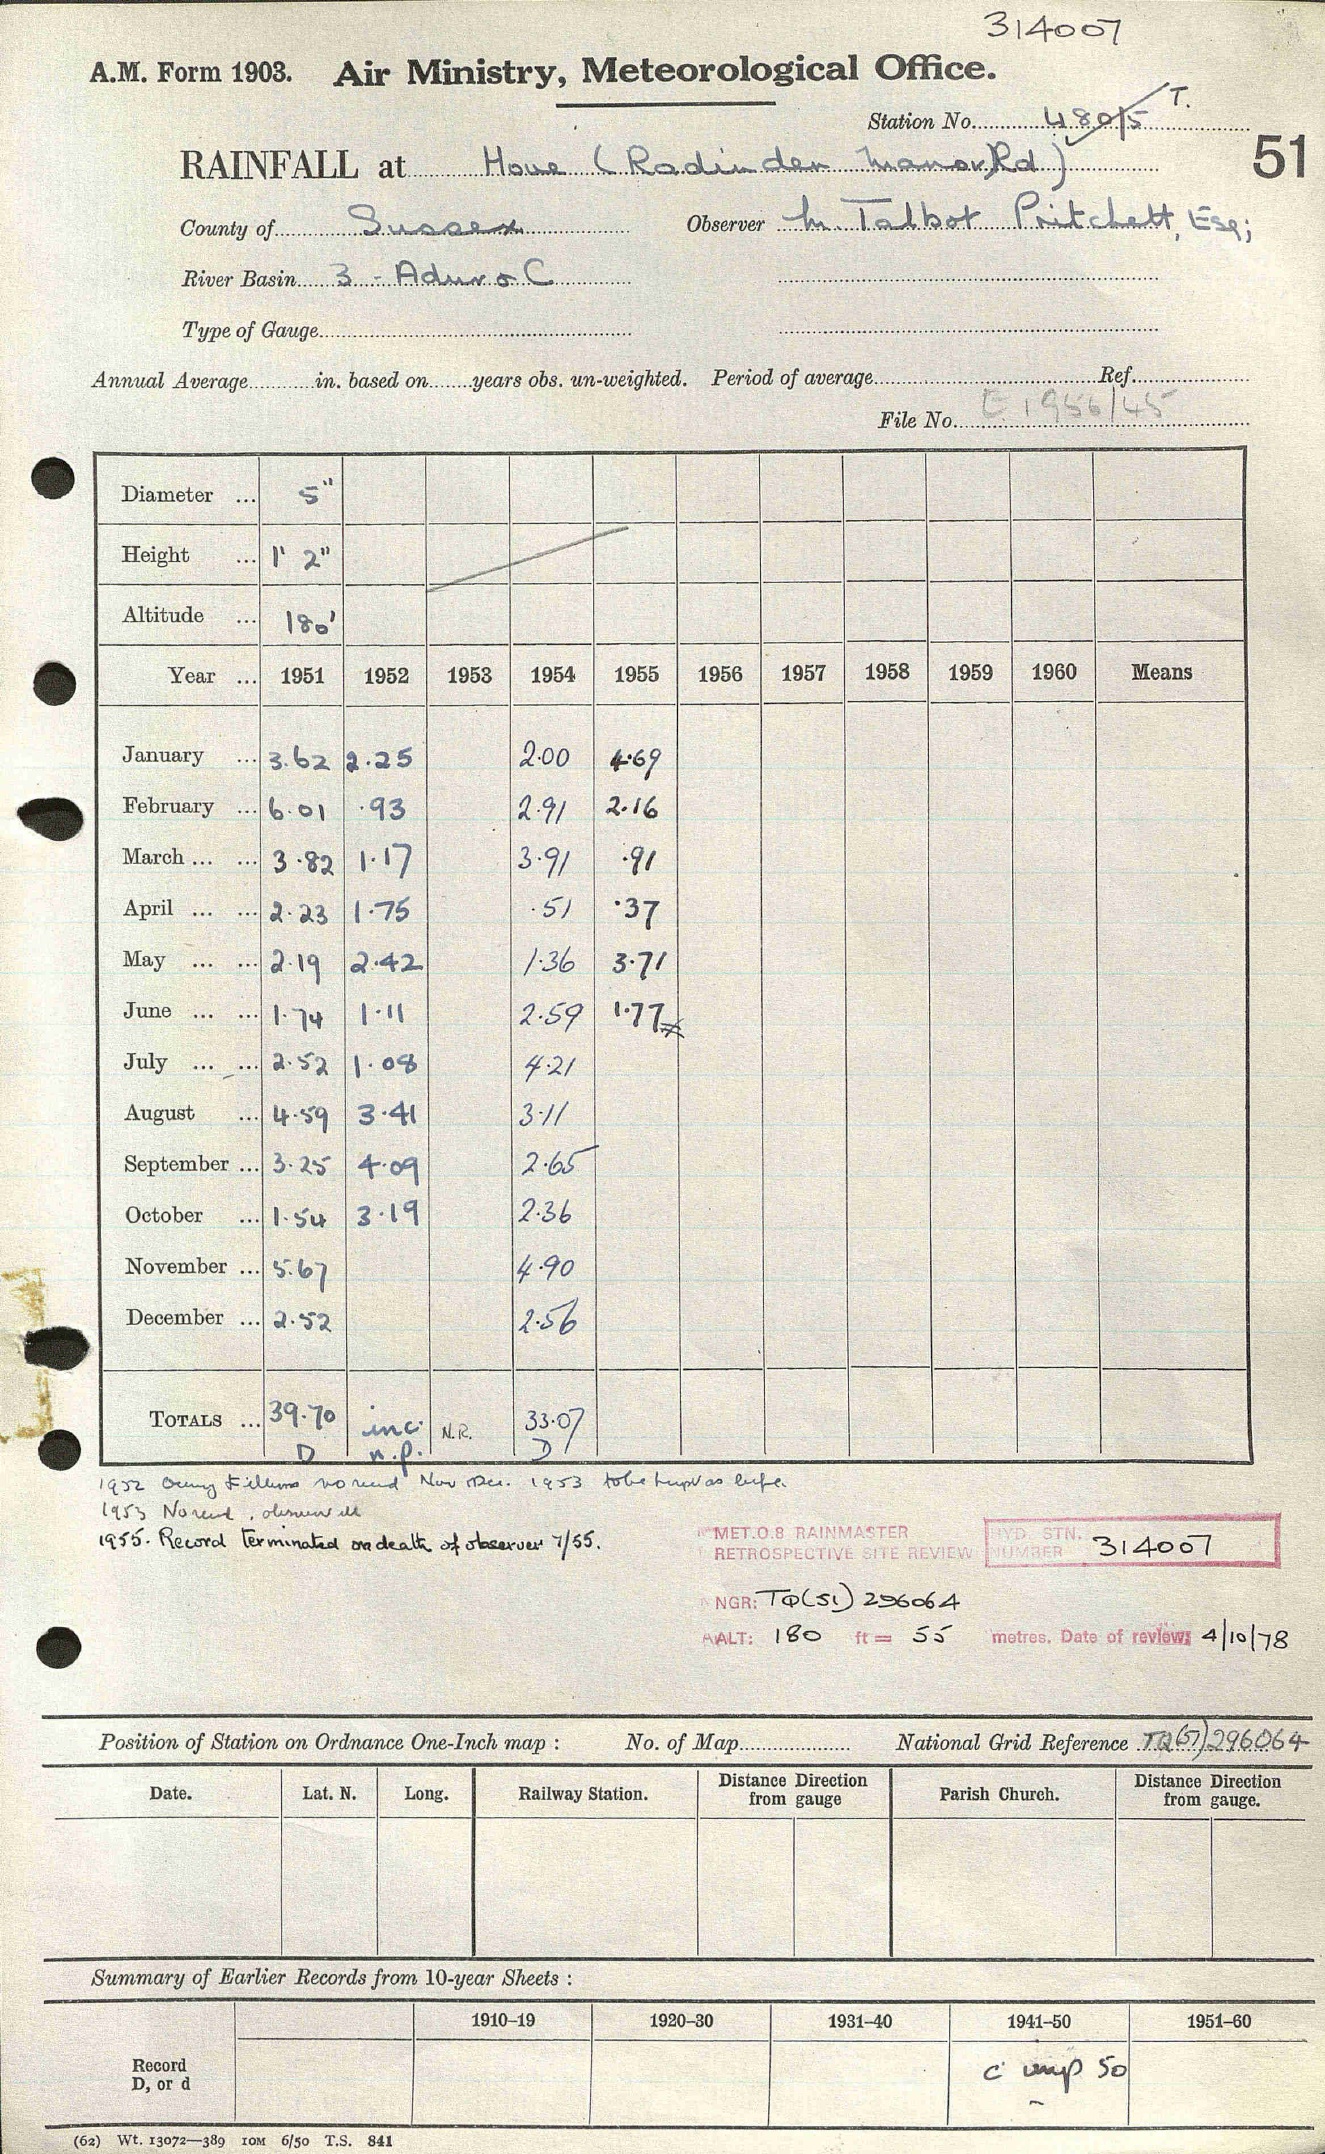 314007
A.M. Form 1903. Air Ministry, Meteorological Office.
Station No. 480/5 T.
RAINFALL at Hove (Radinden Manor Rd) 51
County of Sussex Observer M. Talbot Pritchett, Esq;
River Basin 3 - Adur & C
Type of Gauge
Annual Average in. based on years obs. un-weighted. Period of average Ref.
File No. E 1956/45
Diameter ... 5"
Height ... 1' 2"
Altitude ... 180'
Year ... 1951 1952 1953 1954 1955 1956 1957 1958 1959 1960 Means
January ... 3.62 2.25 2.00 4.69
February ... 6.01 .93 2.91 2.16
March ... ... 3.82 1.17 3.91 .91
April ... ... 2.23 1.75 .51 .37
May ... ... 2.19 2.42 1.36 3.71
June ... ... 1.74 1.11 2.59 1.77
July ... ... 2.52 1.08 4.21
August ... 4.59 3.41 3.11
September ... 3.25 4.09 2.65
October ... 1.54 3.19 2.36
November ... 5.67 4.90
December ... 2.52 2.56
TOTALS ... 39.70 inc. N.R. 33.07
D n.p. D
1952 Owing to illness no record Nov Dec. 1953 to be kept as before.
1953 No record, observer ill
1955. Record terminated on death of observer 7/55.
MET.O.8 RAINMASTER HYD. STN.
RETROSPECTIVE SITE REVIEW NUMBER 314007
NGR: TQ(51) 296064
ALT: 180 ft = 55 metres. Date of review: 4/10/78
Position of Station on Ordnance One-Inch map : No. of Map National Grid Reference TQ(51)296064
Date. Lat. N. Long. Railway Station. Distance from gauge Direction Parish Church. Distance from gauge. Direction
Summary of Earlier Records from 10-year Sheets :
1910–19 1920–30 1931–40 1941–50 1951–60
Record
D, or d 50
(62) Wt. 13072—389 10M 6/50 T.S. 841